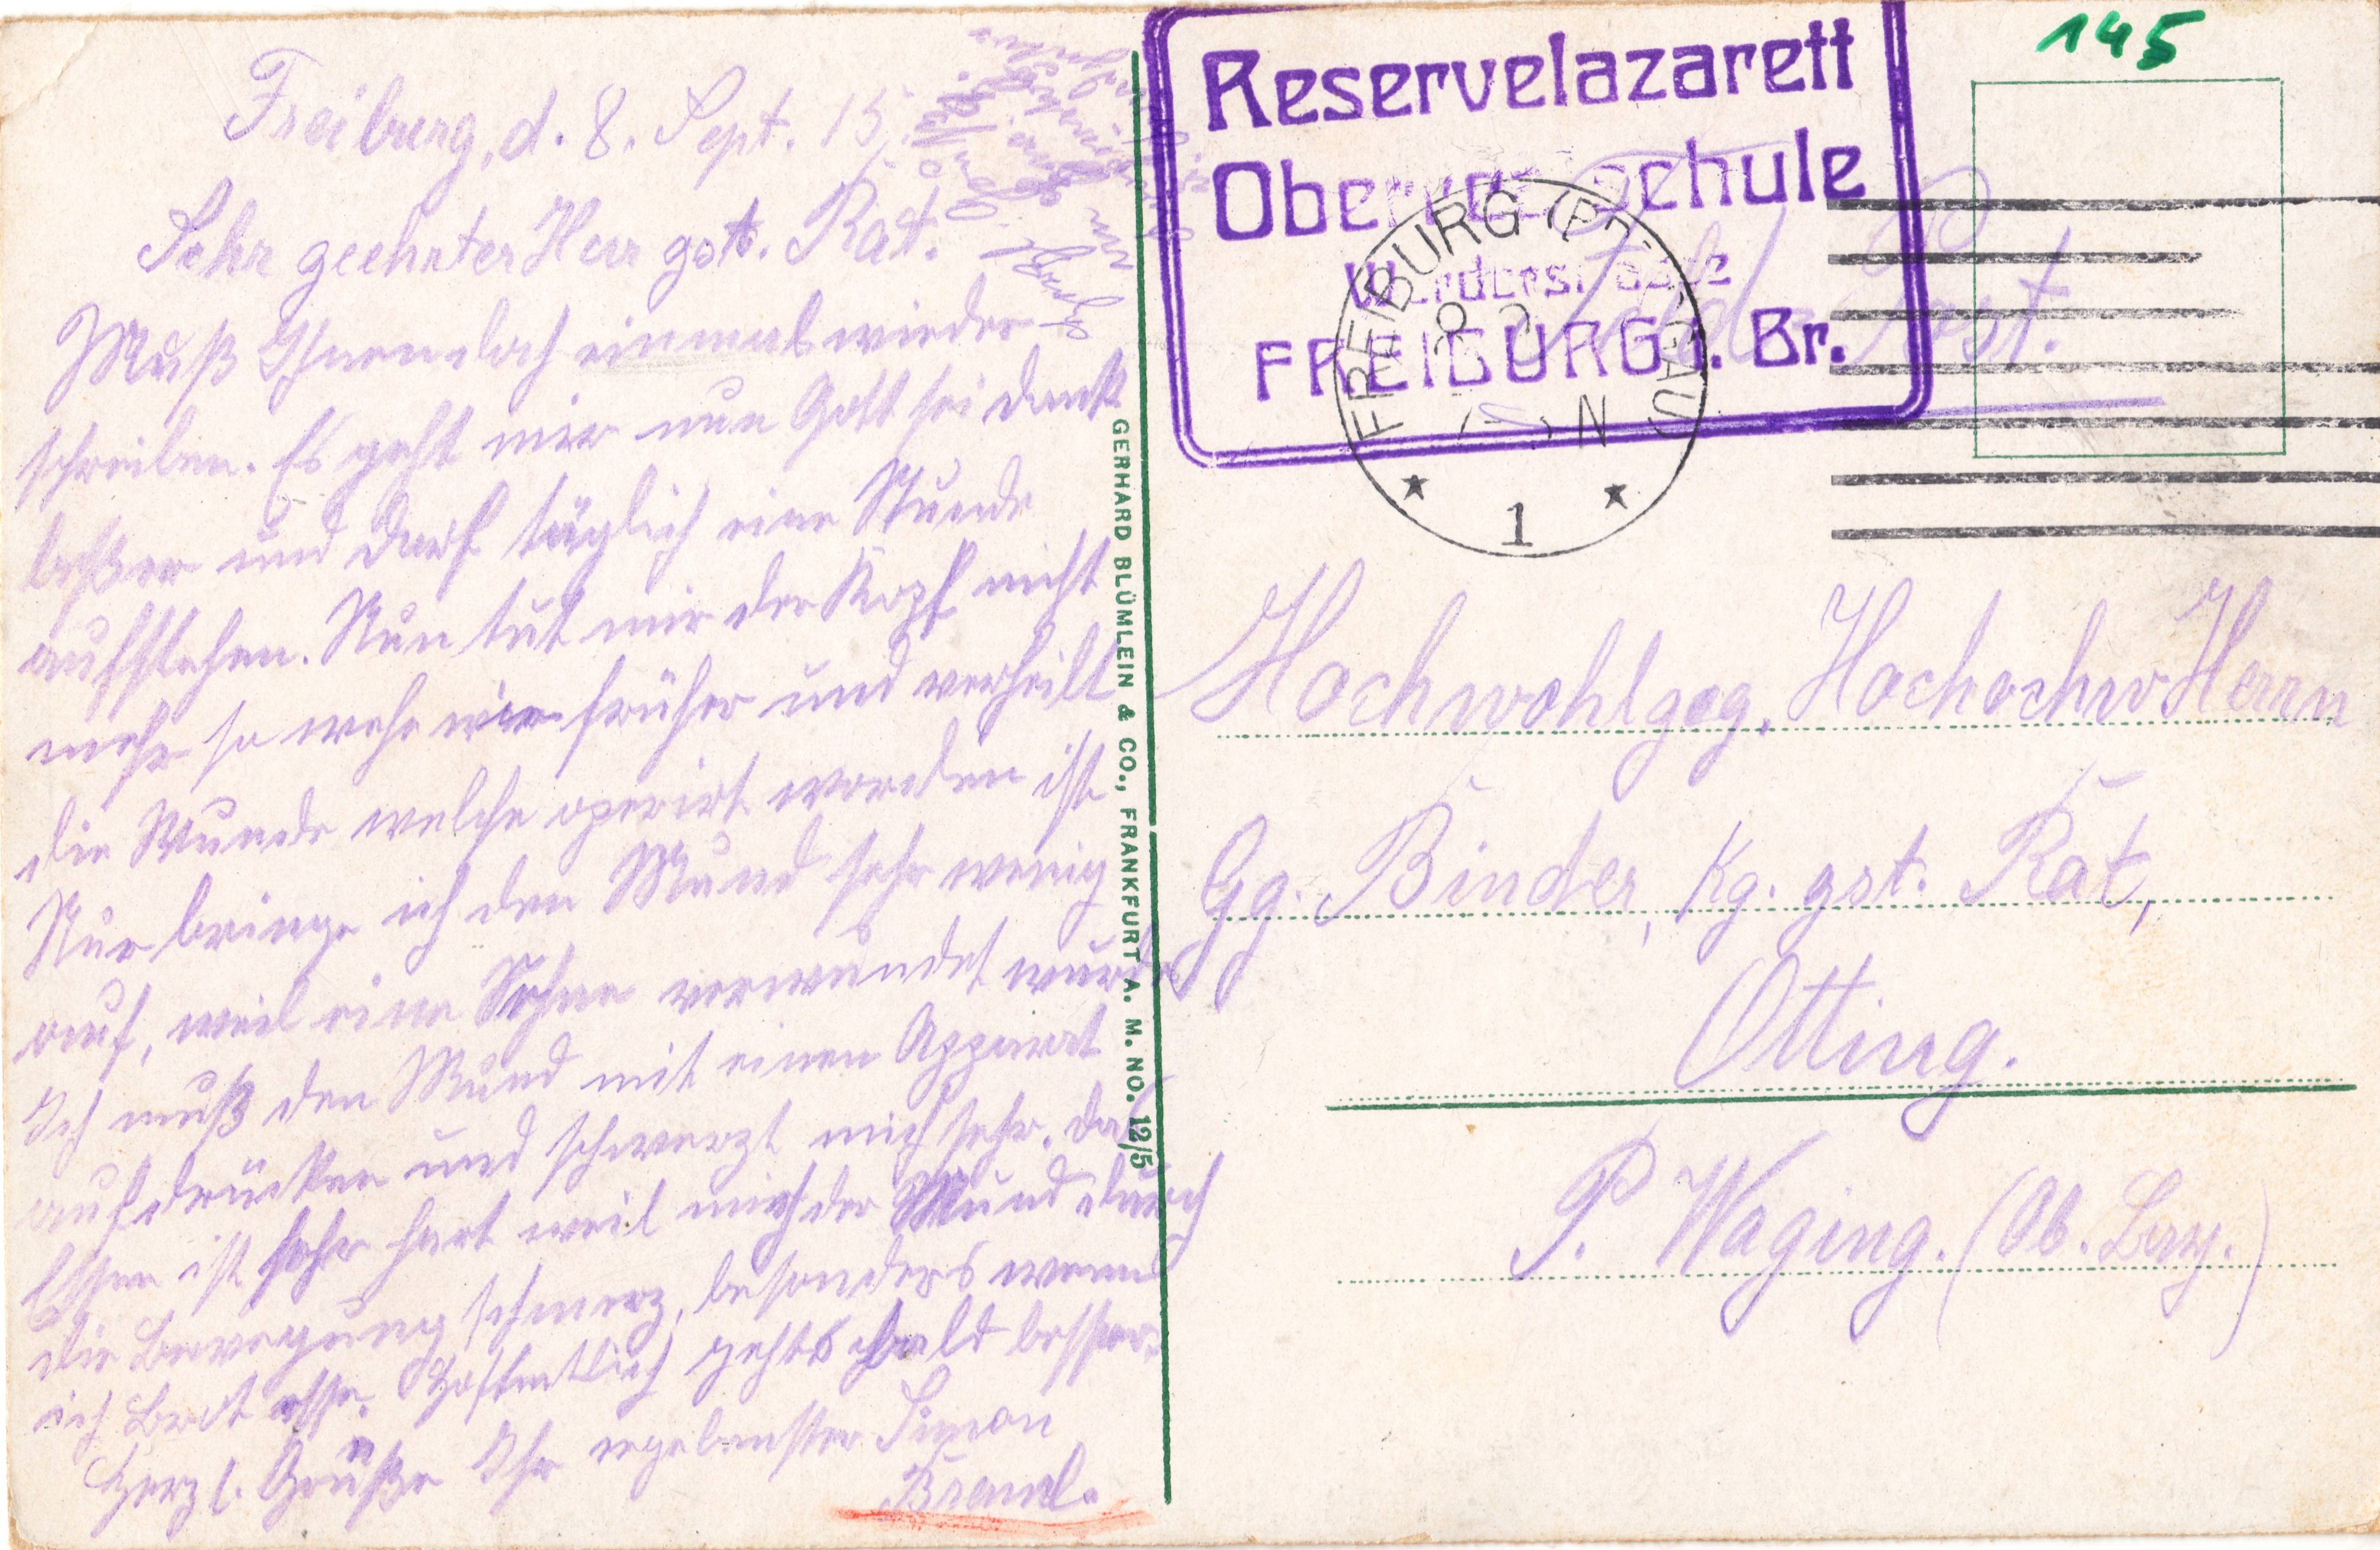 Freiburg, d. 8. Sept. 15.
Sehr geehrter Herr gstl. Rat.
Muß Ihnen doch einmal wieder
schreiben. Es geht mir nun Gott sei dank
beßer und darf täglich eine Stunde
aufstehen. Nun tut mir der Kopf nicht
mehr so wehe wie früher und verheilt
die Wunde welche operirt worden ist
Nur bringe ich den Mund sehr wenig
auf, weil eine Sehne verwundet wurde
Ich muß den Mund mit einen Apparat
aufdrücken und schmerzt mich sehr. das
Essen ist sehr hart weil mich der Mund durch
die Bewegung schmerz, besonders wenn
ich Brot esse. Hoffentlich gehts bald besser.
Herzl. Grüße Ihr ergebenster Simon
Breaml.
GERHARD BLÜMLEIN & CO., FRANKFURT A. M. NO. 12/5
145
Reservelazarett
Oberrealschule
Werderstrasse
FREIBURG i. Br.
FREIBURG (BREISGAU)
8 9
N
★ 1 ★
Feld-Post.
Hochwohlgeg. Hochochw Herrn
Gg. Binder, Kg. gst. Rat,
Otting.
P. Waging. (Ob. Bay.)